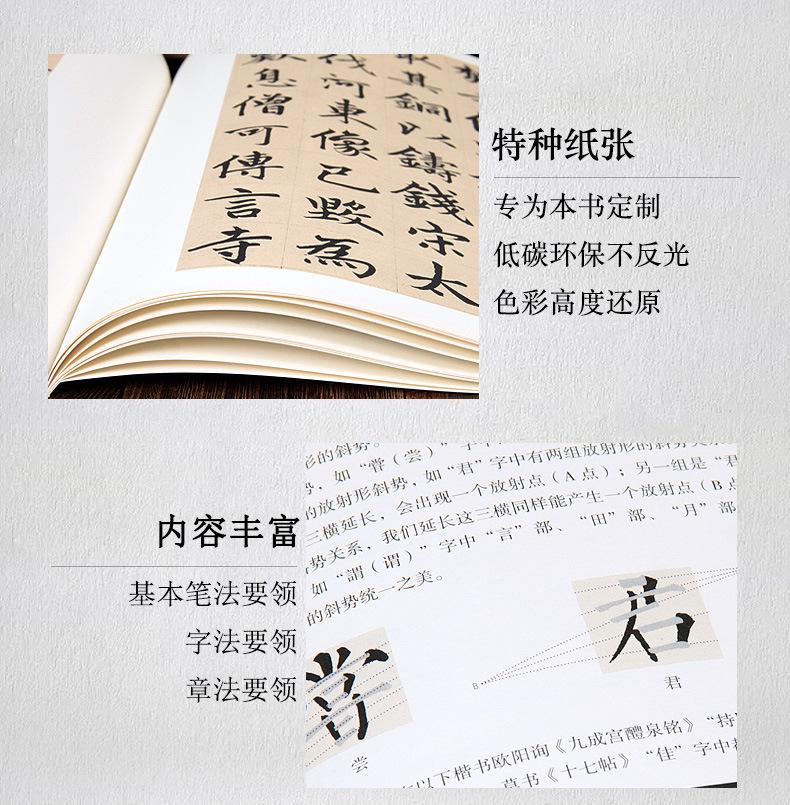 其銅以鑄錢宋太
河東像已毀為
息僧可傳言寺
特种纸张
专为本书定制
低碳环保不反光
色彩高度还原
内容丰富
基本笔法要领
字法要领
章法要领
形的斜势。
，如“甞（尝）”字
的放射形斜势，如“君”字中有两组放射形的斜势关
三横延长，会出现一个放射点（A点）；另一组是“君
势关系，我们延长这三横同样能产生一个放射点（B点
如“謂（谓）”字中“言”部、“田”部、“月”部
的斜势统一之美。
君
B
君
甞
尝
以下楷书欧阳询《九成宫醴泉铭》“持
草书《十七帖》“佳”字中